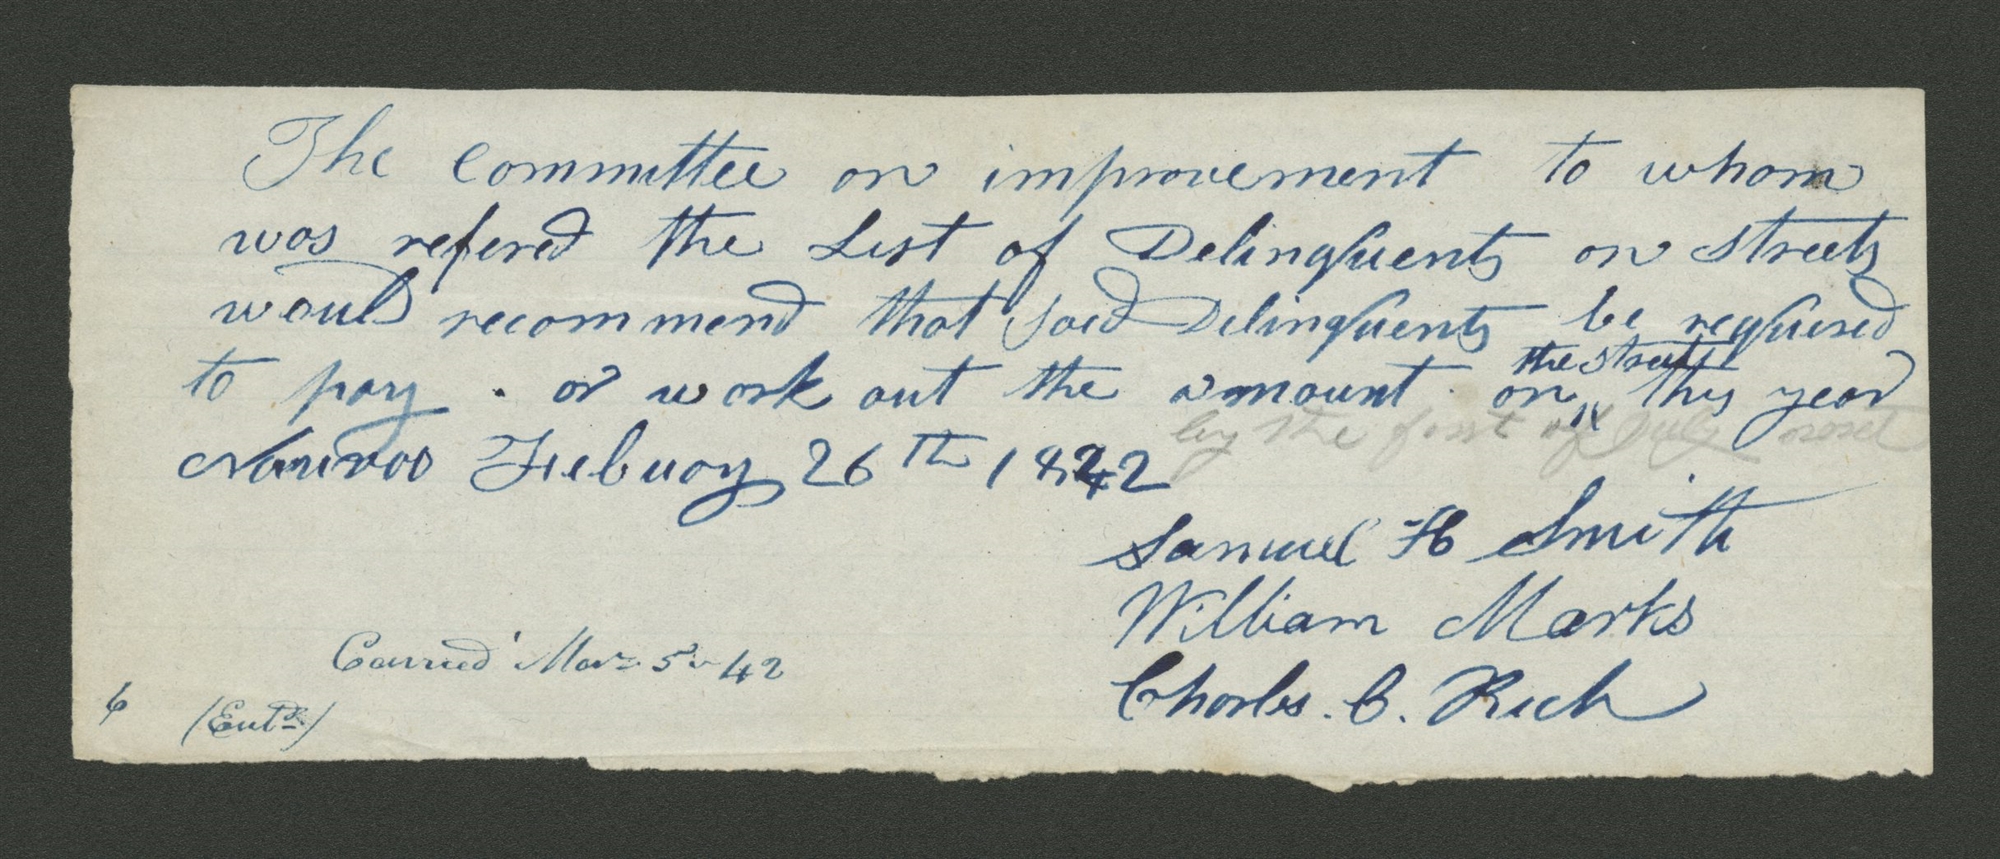 The committee on improvement to whom
was refered the List of Delinquents on Streets
would recommend that said Delinquents be requiered
the streets
to pay . or work out the amount on ^ this year
by the first of July next
Nauvoo Febuary 26th 1842
Samuel H Smith
William Marks
Charles. C. Rich
Carried Mar. 5. 42
6 (Entd.)